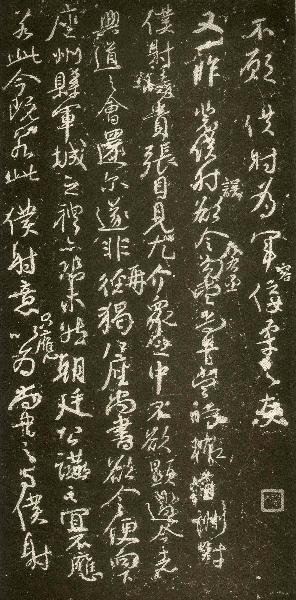 不願僕射為軍容佞柔之友
又一昨裴僕射誤欲令左右丞勾當尚書當時輒有酬對
僕射恃貴張目見尤介眾之中不欲顯過今者
興道之會還爾遂非再猲八座尚書欲令便向下
座州縣軍城之禮亦恐未然朝廷公讌之宜不應
若此今既若此僕射意只應以為尚書之與僕射